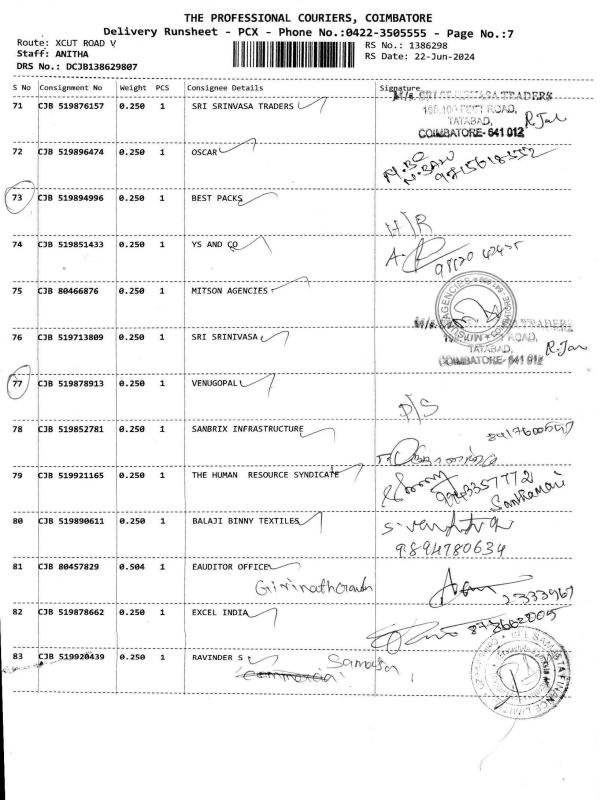 THE PROFESSIONAL COURIERS, COIMBATORE
Delivery Runsheet - PCX - Phone No.:0422-3505555 - Page No.:7
Route: XCUT ROAD V
Staff: ANITHA
DRS No.: DCJB138629807
RS No.: 1386298
RS Date: 22-Jun-2024
S No Consignment No Weight PCS Consignee Details Signature
71 CJB 519876157 0.250 1 SRI SRINVASA TRADERS
TRADERS
FEET ROAD,
TATABAD,
COIMBATORE-641 012
72 CJB 519896474 0.250 1 OSCAR
73 CJB 519894996 0.250 1 BEST PACKS
H/R
74 CJB 519851433 0.250 1 YS AND CO
75 CJB 80466876 0.250 1 MITSON AGENCIES
76 CJB 519713809 0.250 1 SRI SRINIVASA
M/s. TRADERS
ROAD,
TATABAD,
COIMBATORE-641 012
77 CJB 519878913 0.250 1 VENUGOPAL
D/S
78 CJB 519852781 0.250 1 SANBRIX INFRASTRUCTURE
79 CJB 519921165 0.250 1 THE HUMAN RESOURCE SYNDICATE
9943357772
80 CJB 519890611 0.250 1 BALAJI BINNY TEXTILES
9894780634
81 CJB 80457829 0.504 1 EAUDITOR OFFICE
82 CJB 519878662 0.250 1 EXCEL INDIA
83 CJB 519920439 0.250 1 RAVINDER S